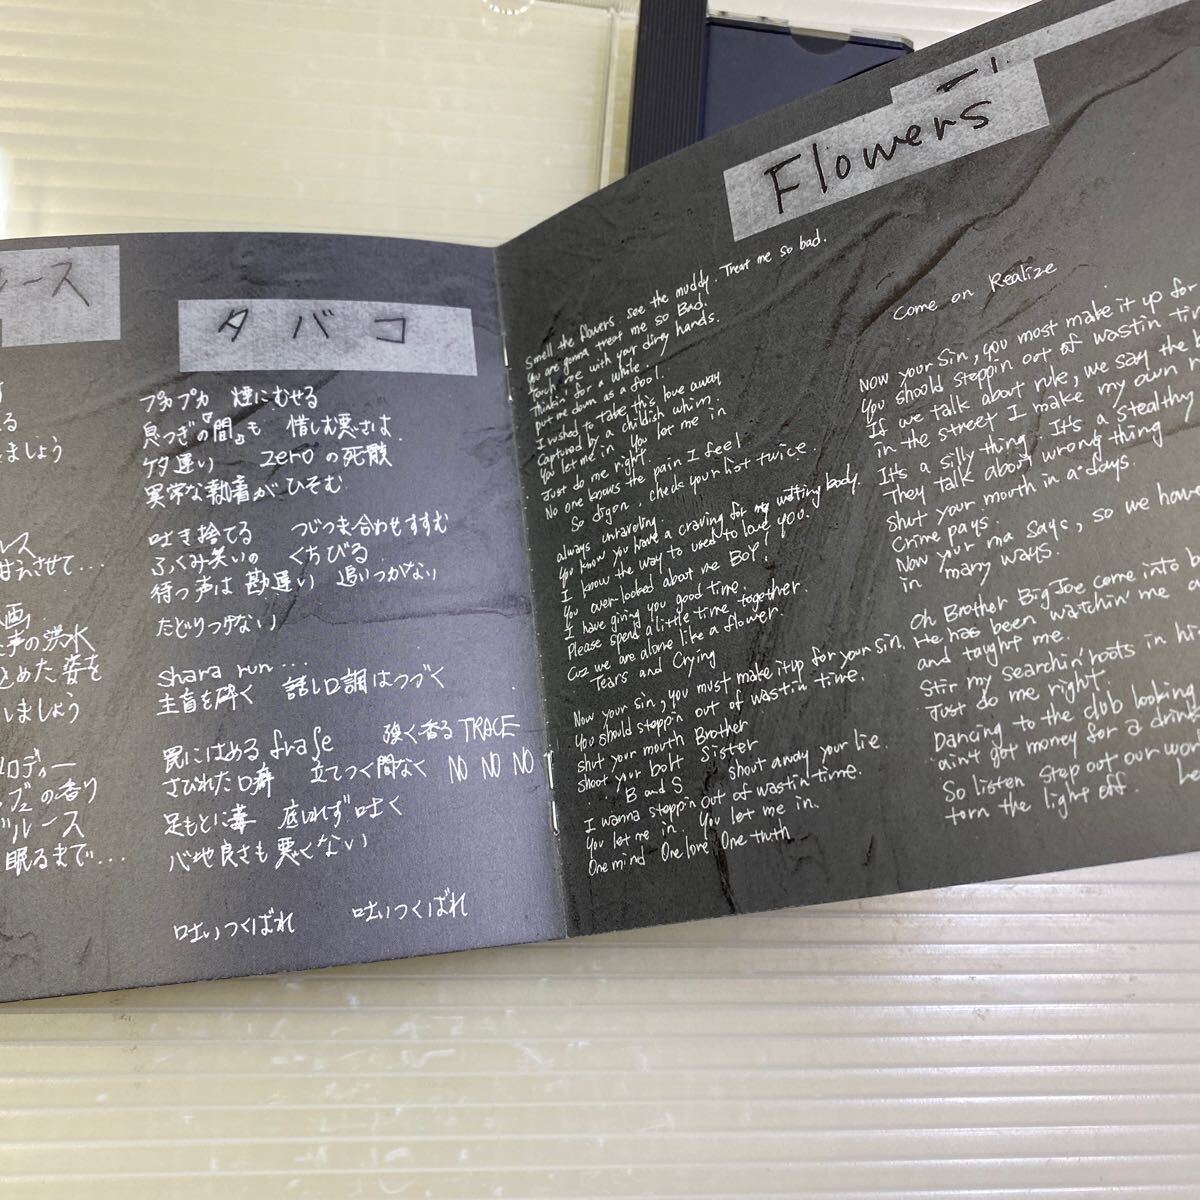 ース
ましょう
ルス
甘えさせて...
画
声の洪水
込めた姿を
しましょう
ロディー
の香り
ブルース
眠るまで...
タバコ
プカプカ 煙にむせる
息つぎの『間』も 惜しむ悪さは
ケタ違い zeroの死骸
異常な執着がひそむ
吐き捨てる つじつま合わせすすむ
ふくみ笑いの くちびる
待つ声は 勘違い 追いつかない
たどりつけない
shara run...
主旨を砕く 話し口調はつづく
罠にはめる frase 強く香る TRACE
さびれた口癖 立てつく間なく NO NO NO
足もとに毒 底しれず吐く
心地良さも悪くない
吐いつくばれ 吐いつくばれ
Flowers
Smell the flowers see the muddy. Treat me so bad.
You are gonna treat me so Bad.
Torch me with your dirty hands.
Thinkin' for a while
put me down as a fool
I rushed to take this love away
Captured by a childish whim.
You let me in You let me in
Just do me right
No one knows the pain I feel
So digon, checks your hot twice.
always unraveling
You know you have a craving for my melting body.
I know the way to used to love you.
You over looked about me Boy!
I have giving you good time.
Please spend a little time together.
Cuz we are alone like a flower.
Tears and Crying
Now your sin, you must make it up for your sin.
You should steppin out of wastin time.
shut your mouth Brother
shoot your bolt Sister
B and S shout away your lie.
I wanna steppin out of wastin time.
You let me in. You let me in.
One mind One love One truth
Come on Realize
Now your sin, you most make it up for
You should steppin out of wastin tim
If we talk about rule, we say the b
in the street I make my own r
It's a silly thing. It's a stealthy
They talk about wrong thing
shut your mouth in a days.
Crime pays.
Now your ma says, so we have
in many ways.
Oh Brother Big Joe come into b
He has been watchin' me
and taught me.
Stir my searchin' roots in hi
Just do me right.
Dancing to the club looking
ain't got money for a drink
So listen step out our wor
torn the light off. Le